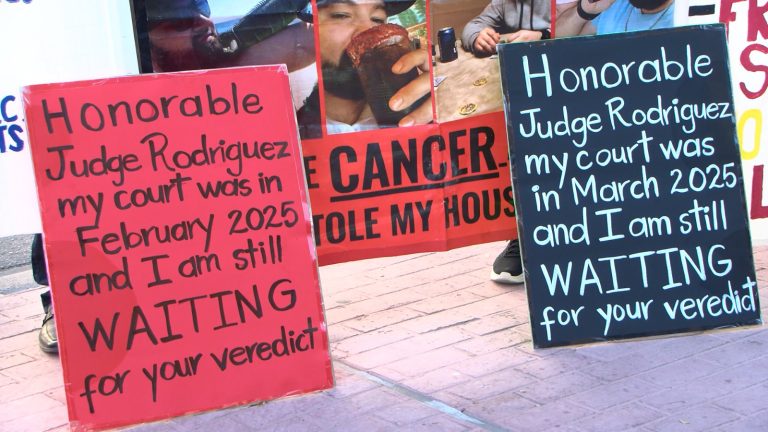 Honorable
Judge Rodriguez
my court was in
February 2025
and I am still
WAITING
for your veredict
CANCER
TOLE MY HOUS
Honorable
Judge Rodriguez
my court was
in March 2025
and I am still
WAITING
for your veredict